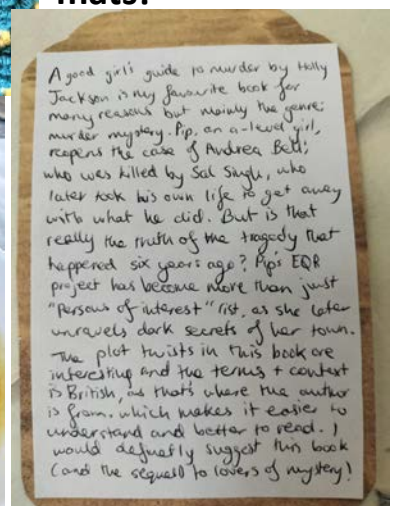 mats!
A good girl's guide to murder by Holly
Jackson is my favourite book for
many reasons but mainly the genre;
murder mystery. Pip, an a-level girl,
reopens the case of Andrea Bell;
who was killed by Sal Singh, who
later took his own life to get away
with what he did. But is that
really the truth of the tragedy that
happened six years ago? Pip's EQR
project has become more than just
"Persons of interest" list, as she later
unravels dark secrets of her town.
The plot twists in this book are
interesting and the terms + context
is British, as that's where the author
is from. which makes it easier to
understand and better to read. I
would definatly suggest this book
(and the sequel) to lovers of mystery!